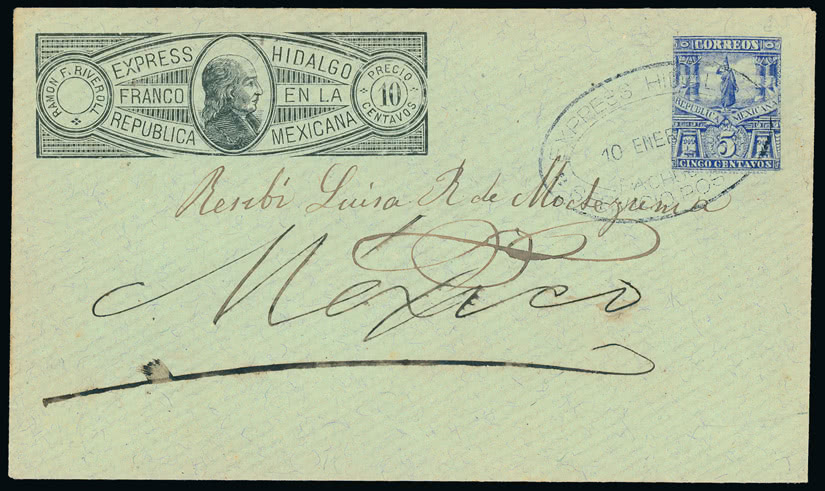 RAMON F. RIVEROLL
EXPRESS HIDALGO
FRANCO EN LA
REPUBLICA MEXICANA
PRECIO
10
CENTAVOS
CORREOS
5 5
REPUBLICA MEXICANA
5
CINCO CENTAVOS
EXPRESS HIDALGO
10 ENER
Recibí Luisa R de Moctezuma
Mexico